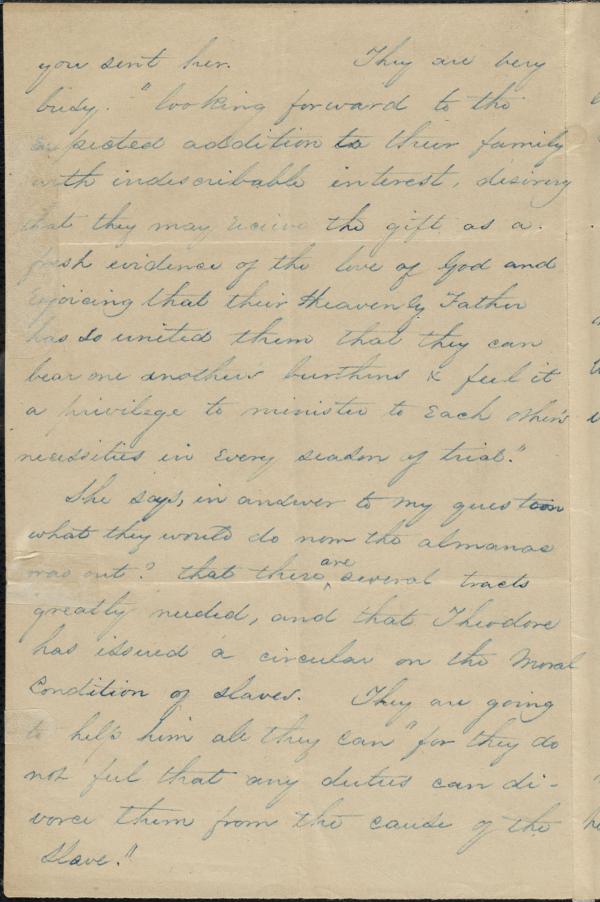 you sent her. They are very
busy. "looking forward to the
expected addition to their family
with indescribable interest, desiring
that they may receive the gift as a
fresh evidence of the love of God and
rejoicing that their Heavenly Father
has so united them that they can
bear one another's burthens & feel it
a privilege to minister to each other's
necessities in every season of trial."
She says, in answer to my question
what they would do now the almanac
was out? that there are several tracts
greatly needed, and that Theodore
has issued a circular on the Moral
Condition of slaves. They are going
to help him all they can "for they do
not feel that any duties can di-
vorce them from the cause of the
slave."